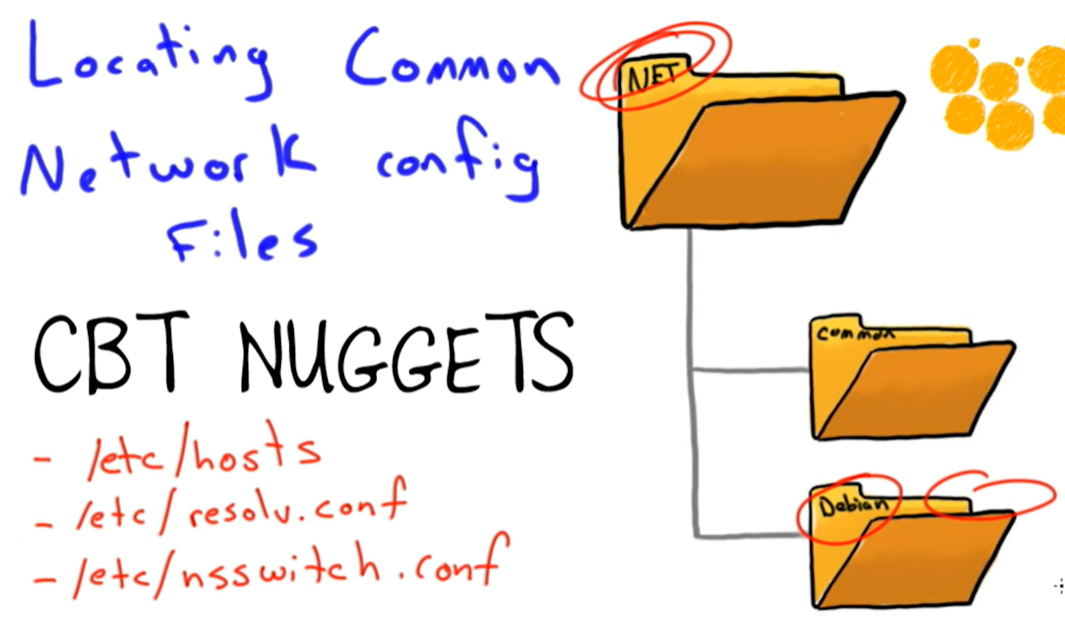 Locating Common
Network config
Files
CBT NUGGETS
- /etc/hosts
- /etc/resolv.conf
- /etc/nsswitch.conf
NET
Common
Debian